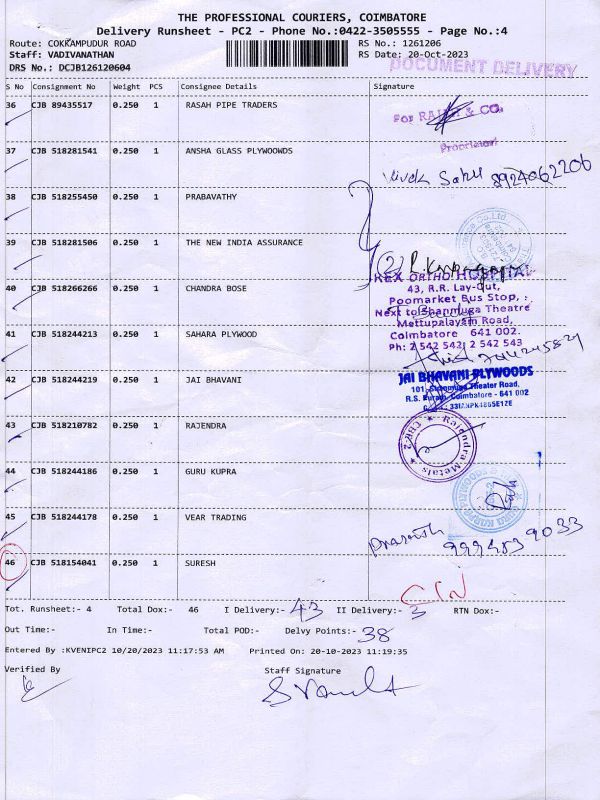 THE PROFESSIONAL COURIERS, COIMBATORE
Delivery Runsheet - PC2 - Phone No.:0422-3505555 - Page No.:4
Route: COKKAMPUDUR ROAD RS No.: 1261206
Staff: VADIVANATHAN RS Date: 20-Oct-2023
DRS No.: DCJB126120604
DOCUMENT DELIVERY
S No Consignment No Weight PCS Consignee Details Signature
36 CJB 89435517 0.250 1 RASAH PIPE TRADERS
For & CO.
Proprietor
37 CJB 518281541 0.250 1 ANSHA GLASS PLYWOOWDS
8924062206
38 CJB 518255450 0.250 1 PRABAVATHY
39 CJB 518281506 0.250 1 THE NEW INDIA ASSURANCE
(2)
40 CJB 518266266 0.250 1 CHANDRA BOSE
REX ORTHO HOSPITAL
43, R.R. Lay-Out,
Poomarket Bus Stop,
Next to Shanmuga Theatre
Mettupalayam Road,
Coimbatore 641 002.
Ph: 2 542 542, 2 542 543
41 CJB 518244213 0.250 1 SAHARA PLYWOOD
42 CJB 518244219 0.250 1 JAI BHAVANI
JAI BHAVANI PLYWOODS
101, Shanmuga Theater Road,
R.S. Puram, Coimbatore - 641 002
43 CJB 518210782 0.250 1 RAJENDRA
Rajendra Metals
CBE-2
44 CJB 518244186 0.250 1 GURU KUPRA
45 CJB 518244178 0.250 1 VEAR TRADING
9994539033
46 CJB 518154041 0.250 1 SURESH
Tot. Runsheet:- 4 Total Dox:- 46 I Delivery:- 43 II Delivery:- 3 RTN Dox:-
Out Time:- In Time:- Total POD:- Delvy Points:- 38
Entered By :KVENIPC2 10/20/2023 11:17:53 AM Printed On: 20-10-2023 11:19:35
Verified By Staff Signature